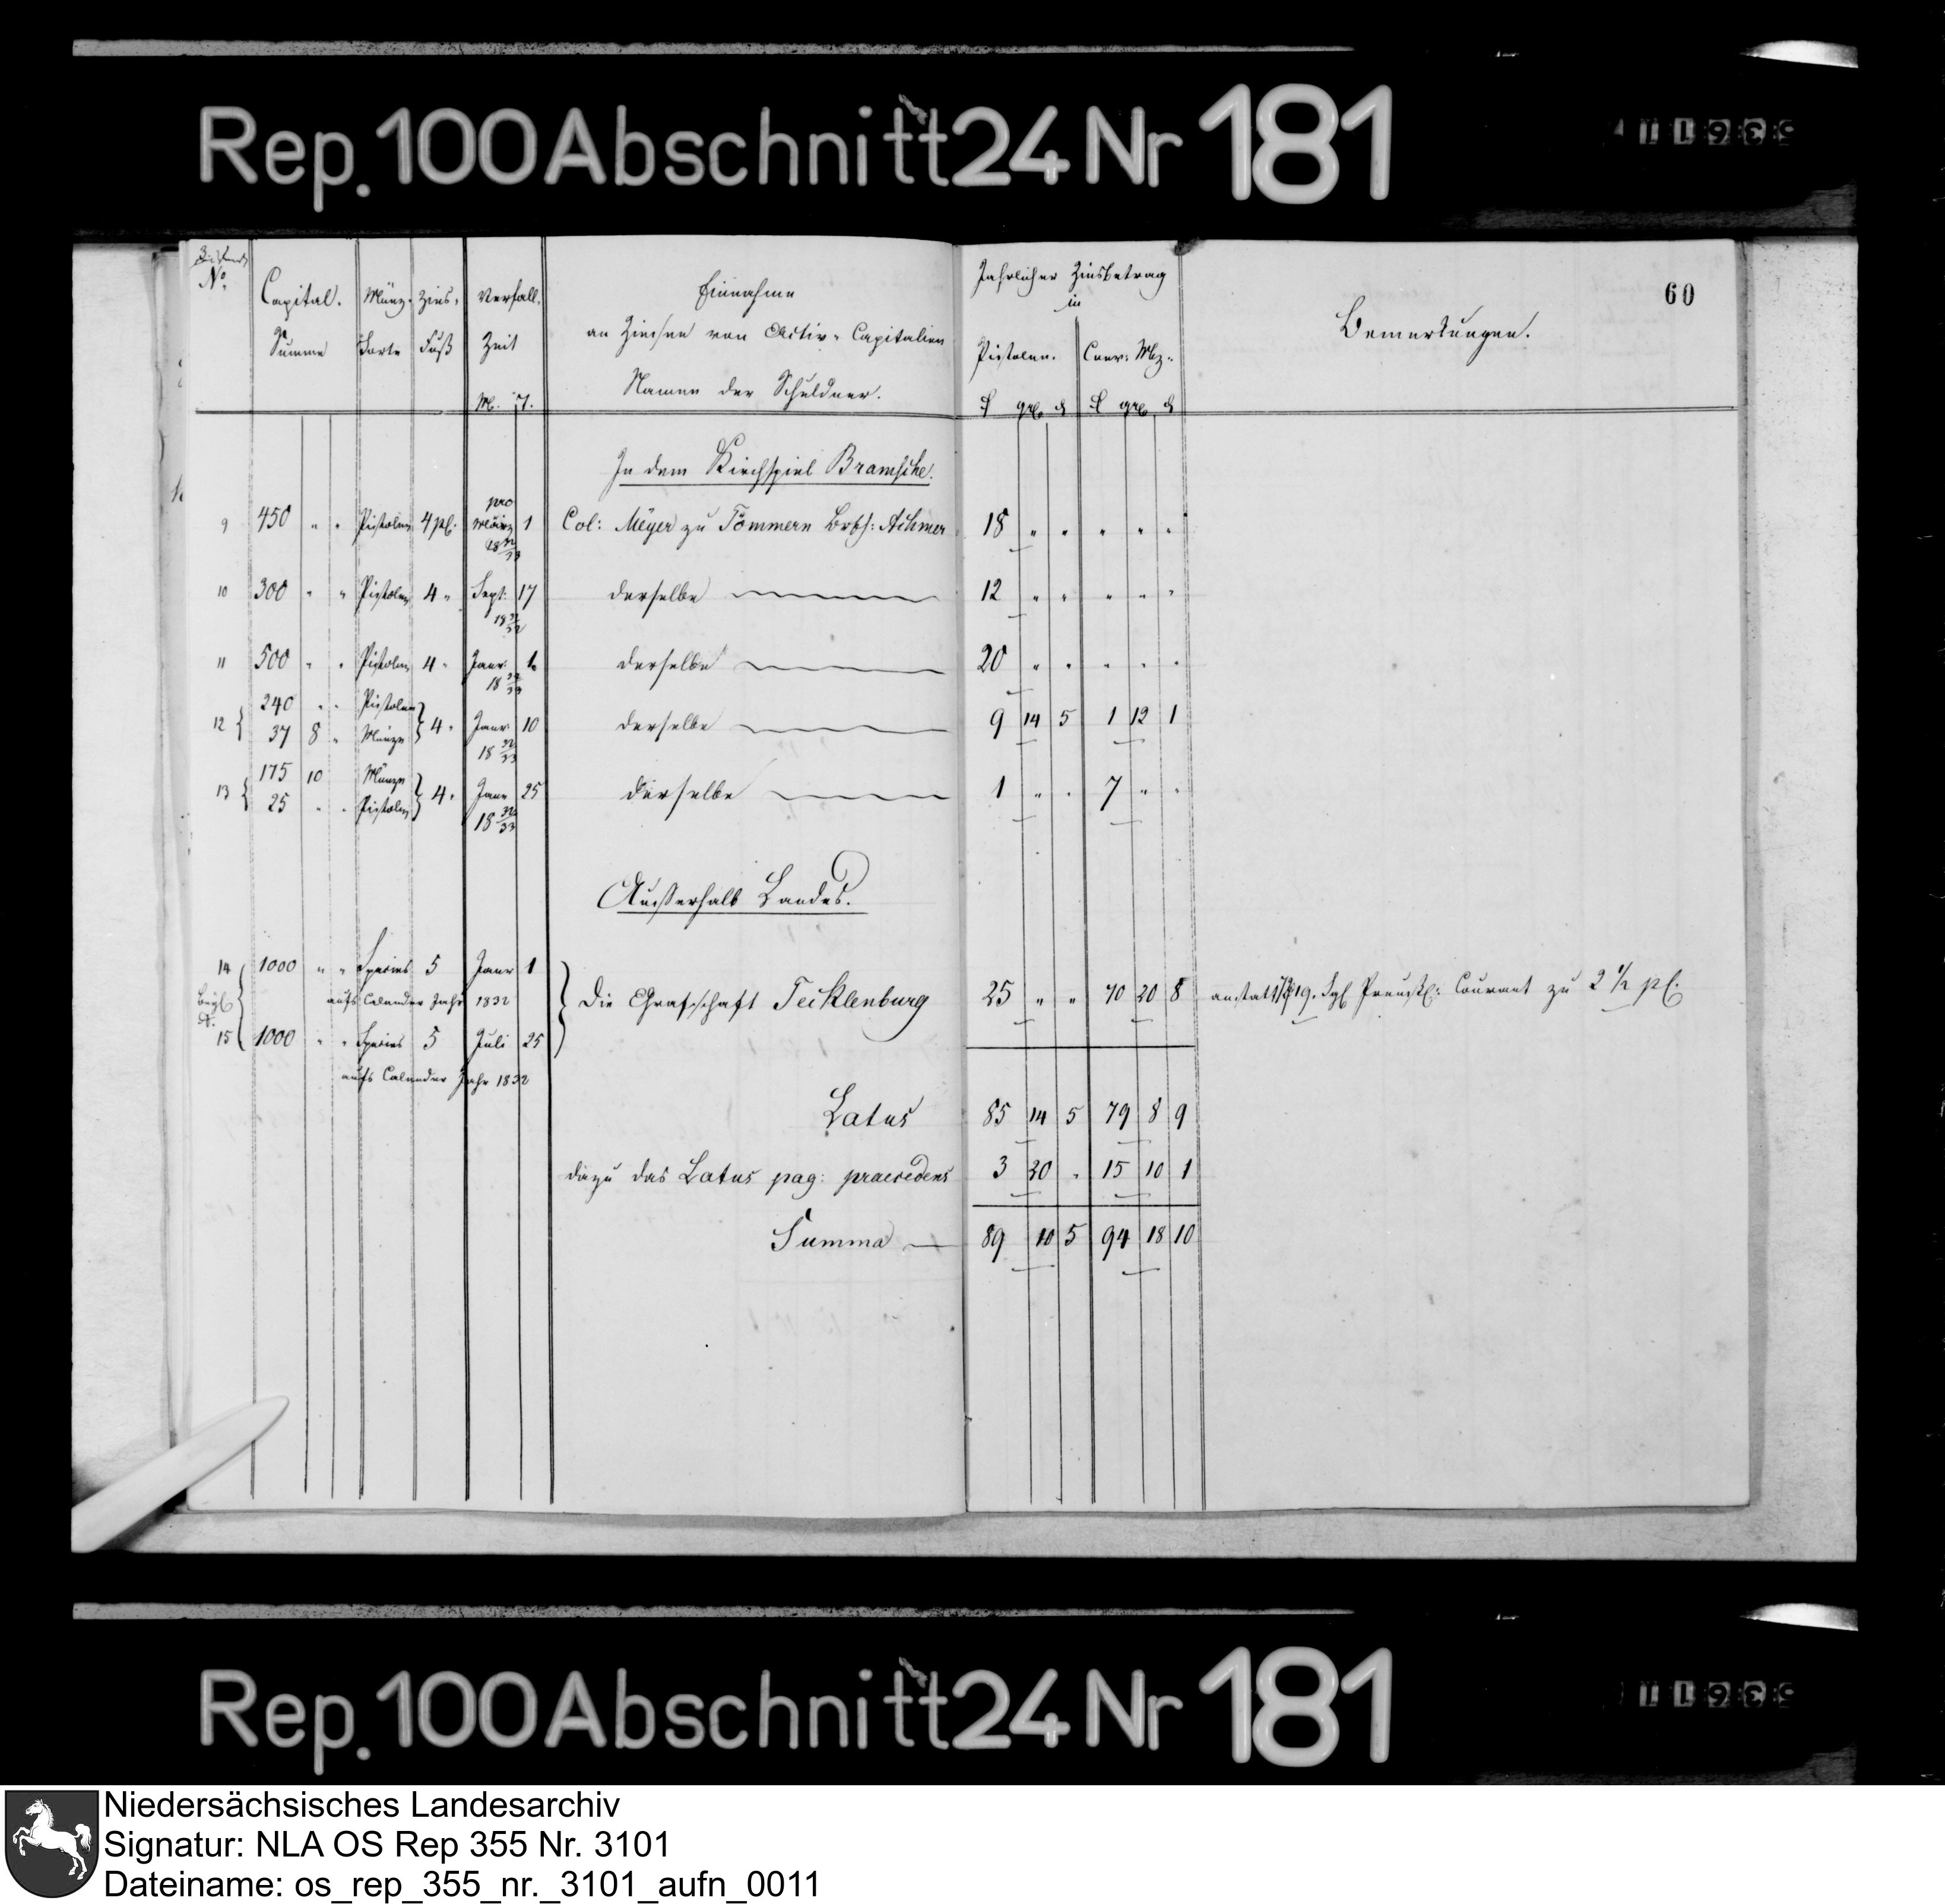 Rep. 100 Abschnitt 24 Nr 181
60
No. Capital. Summe Münz- Sorte Zins- Fuß Verfall. Zeit M. T.
Einnahme
an Zinsen von Activ-Capitalien
Namen der Schuldner.
Jahrlicher Zinsbetrag
in
Pistolen. Conv: Mz:
Bemerkungen.
In dem Kirchspiel Bramsche.
9 450 " " Pistolen 4 pC. pro März 1 18 32/33 Col: Meyer zu Tömmern Brsch: Achmer 18 " " " " "
10 300 " " Pistolen 4 " Sept: 17 18 31/32 derselbe 12 " " " " "
11 500 " " Pistolen 4 " Janr: 1 18 32/33 derselbe 20 " " " " "
12 { 240 " " Pistolen
37 8 " Münze } 4 " Janr: 10 18 32/33 derselbe 9 14 5 1 12 1
13 { 175 10 Münze
25 " " Pistolen } 4 " Janr 25 18 32/33 derselbe 1 " " 7 " "
Ausserhalb Landes.
14 1000 " " Species 5 Janr 1
aufs Calender Jahr 1832
Die Grafschaft Tecklenburg 25 " " 70 20 8 anstatt Preuss: Courant zu 2 1/2 pC.
15 1000 " " Species 5 Juli 25
aufs Calender Jahr 1832
Latus 85 14 5 79 8 9
dazu das Latus pag: praecedens 3 20 " 15 10 1
Summa 89 10 5 94 18 10
Rep. 100 Abschnitt 24 Nr 181
Niedersächsisches Landesarchiv
Signatur: NLA OS Rep 355 Nr. 3101
Dateiname: os_rep_355_nr._3101_aufn_0011